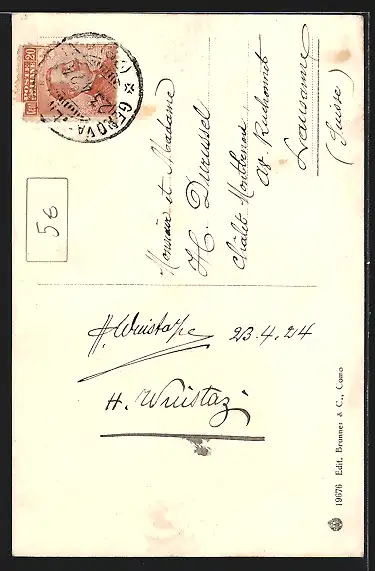 POSTE ITALIANE
20
GENOVA
23
56
Monsieur et Madame
H. Durussel
Châlet Montbenon
Av Ruchonnet
Lausanne
(Suisse)
23.4.24
H.
19676 Edit. Brunner & C., Como